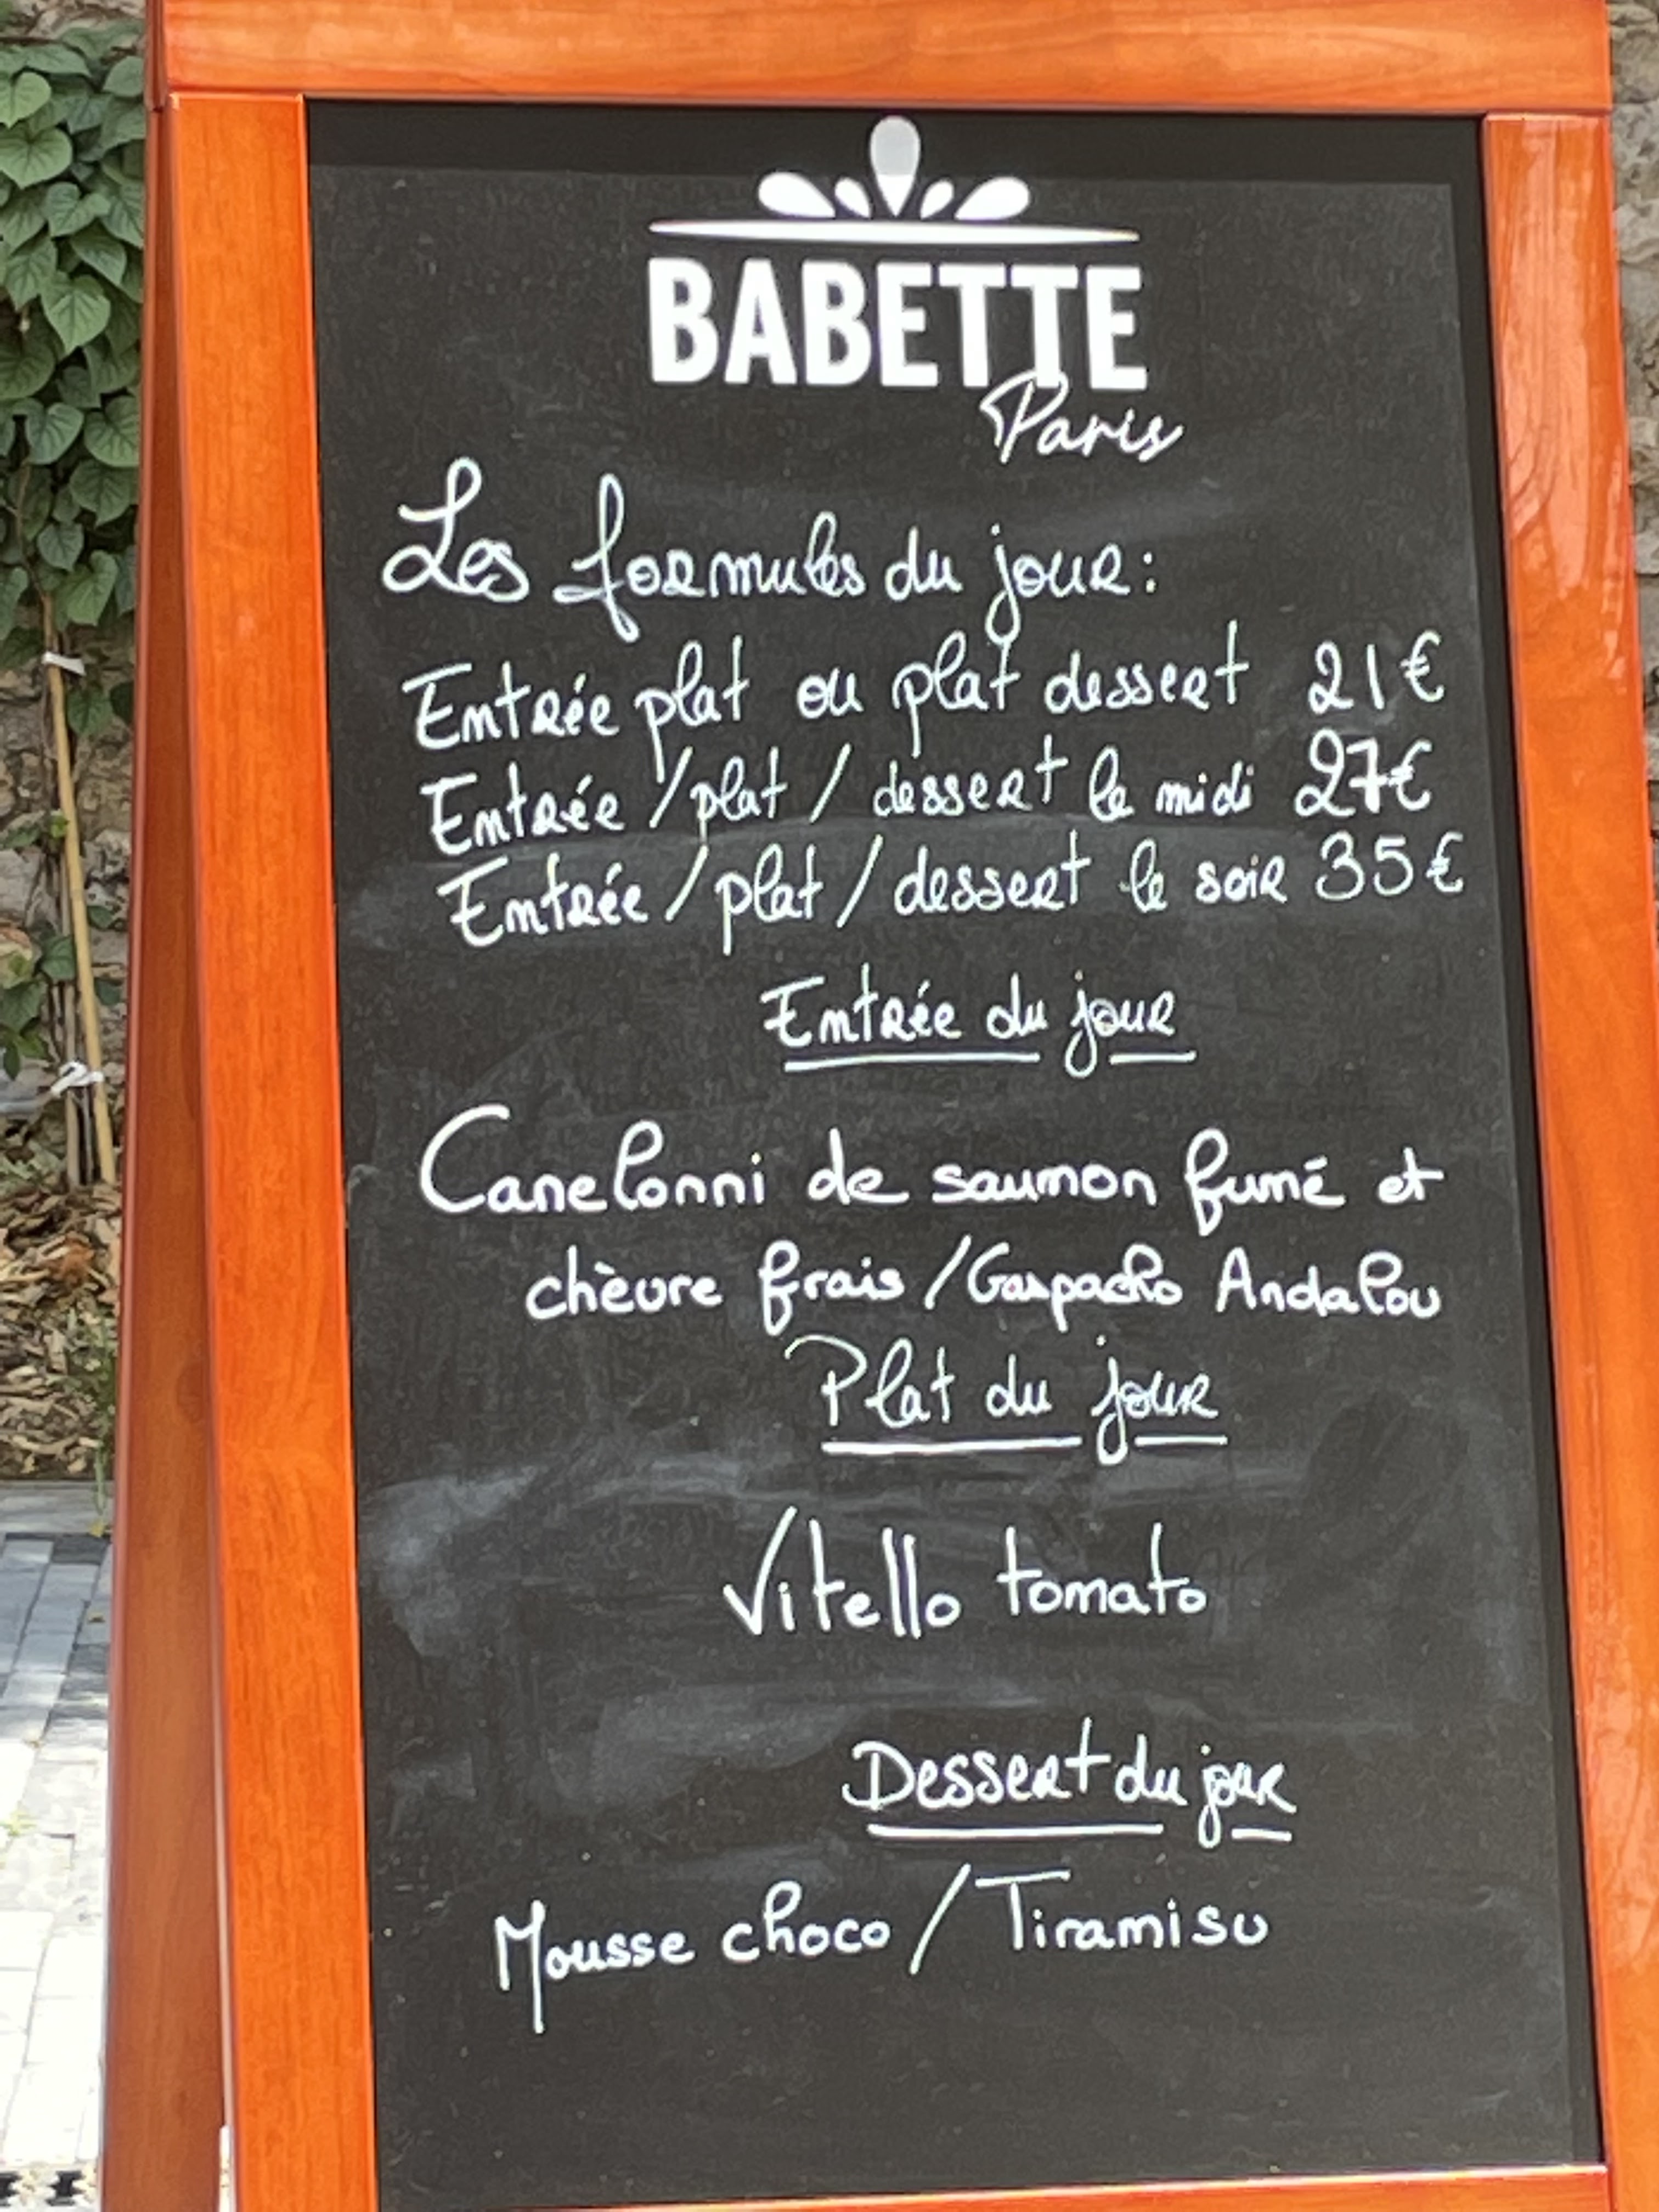 BABETTE
Paris
Les formules du jour:
Entrée plat ou plat dessert 21€
Entrée / plat / dessert le midi 27€
Entrée / plat / dessert le soir 35€
Entrée du jour
Canelonni de saumon fumé et
chèvre frais / Gaspacho Andalou
Plat du jour
Vitello tomato
Dessert du jour
Mousse choco / Tiramisu